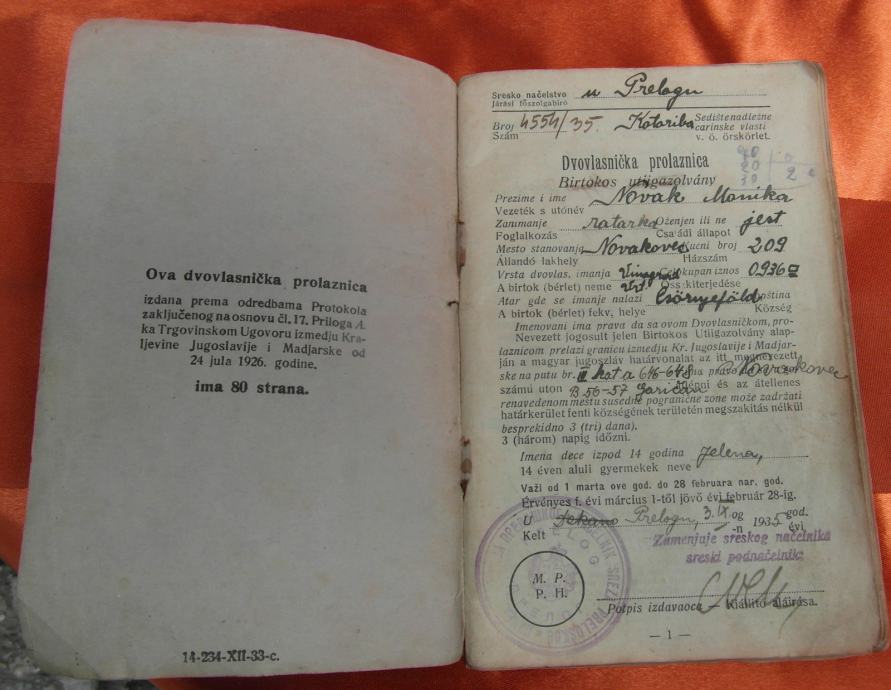 Ova dvovlasnička prolaznica
izdana prema odredbama Protokola
zaključenog na osnovu čl. 17. Priloga A.
ka Trgovinskom Ugovoru izmedju Kra-
ljevine Jugoslavije i Madjarske od
24 jula 1926. godine.
ima 80 strana.
14-234-XII-33-c.
Sresko načelstvo u Prelogu
Járási főszolgabiró
Broj 4554/35. Kotoriba Sedište nadležne
Szám carinske vlasti
v. ö. örskörlet.
Dvovlasnička prolaznica
Birtokos utiigazolvány
Prezime i ime Novak Monika
Vezeték s utónév
Zanimanje ratarka Oženjen ili ne jest
Foglalkozás Családi állapot
Mesto stanovanja Novakovec Kućni broj 209
Állandó lakhely Házszám
Vrsta dvovlas. imanja Vinograd Celokupan iznos 0936
A birtok (bérlet) neme Össz kiterjedése
Atar gde se imanje nalazi Csörnyeföld
A birtok (bérlet) fekv, helye Község
Imenovani ima prava da sa ovom Dvovlasničkom, pro-
Nevezett jogosult jelen Birtokos Utiigazolvány alap-
laznicom prelazi granicu izmedju Kr. Jugoslavije i Madjar-
ján a magyar jugoszláv határvonalat az itt megnevezett
ske na putu br. III kot a 646-648 ima pravo Novakovec
számú uton B 56-57 lépni és az átellenes
renavedenom mestu susedne pogranične zone može zadržati
határkerület fenti községének területén megszakitás nélkül
besprekidno 3 (tri) dana).
3 (három) napig időzni.
Imena dece izpod 14 godina Jelena,
14 éven aluli gyermekek neve
Važi od 1 marta ove god. do 28 februara nar. god.
Érvényes f. évi március 1-től jövő évi február 28-ig.
U Prelogu, 3. IX og 1935 god.
Kelt -n évi
Zamenjuje sreskog načelnika
sreski podnačelnik:
PRELOG
M. P.
P. H.
Potpis izdavaoca — Kiállitó aláirása.
— 1 —